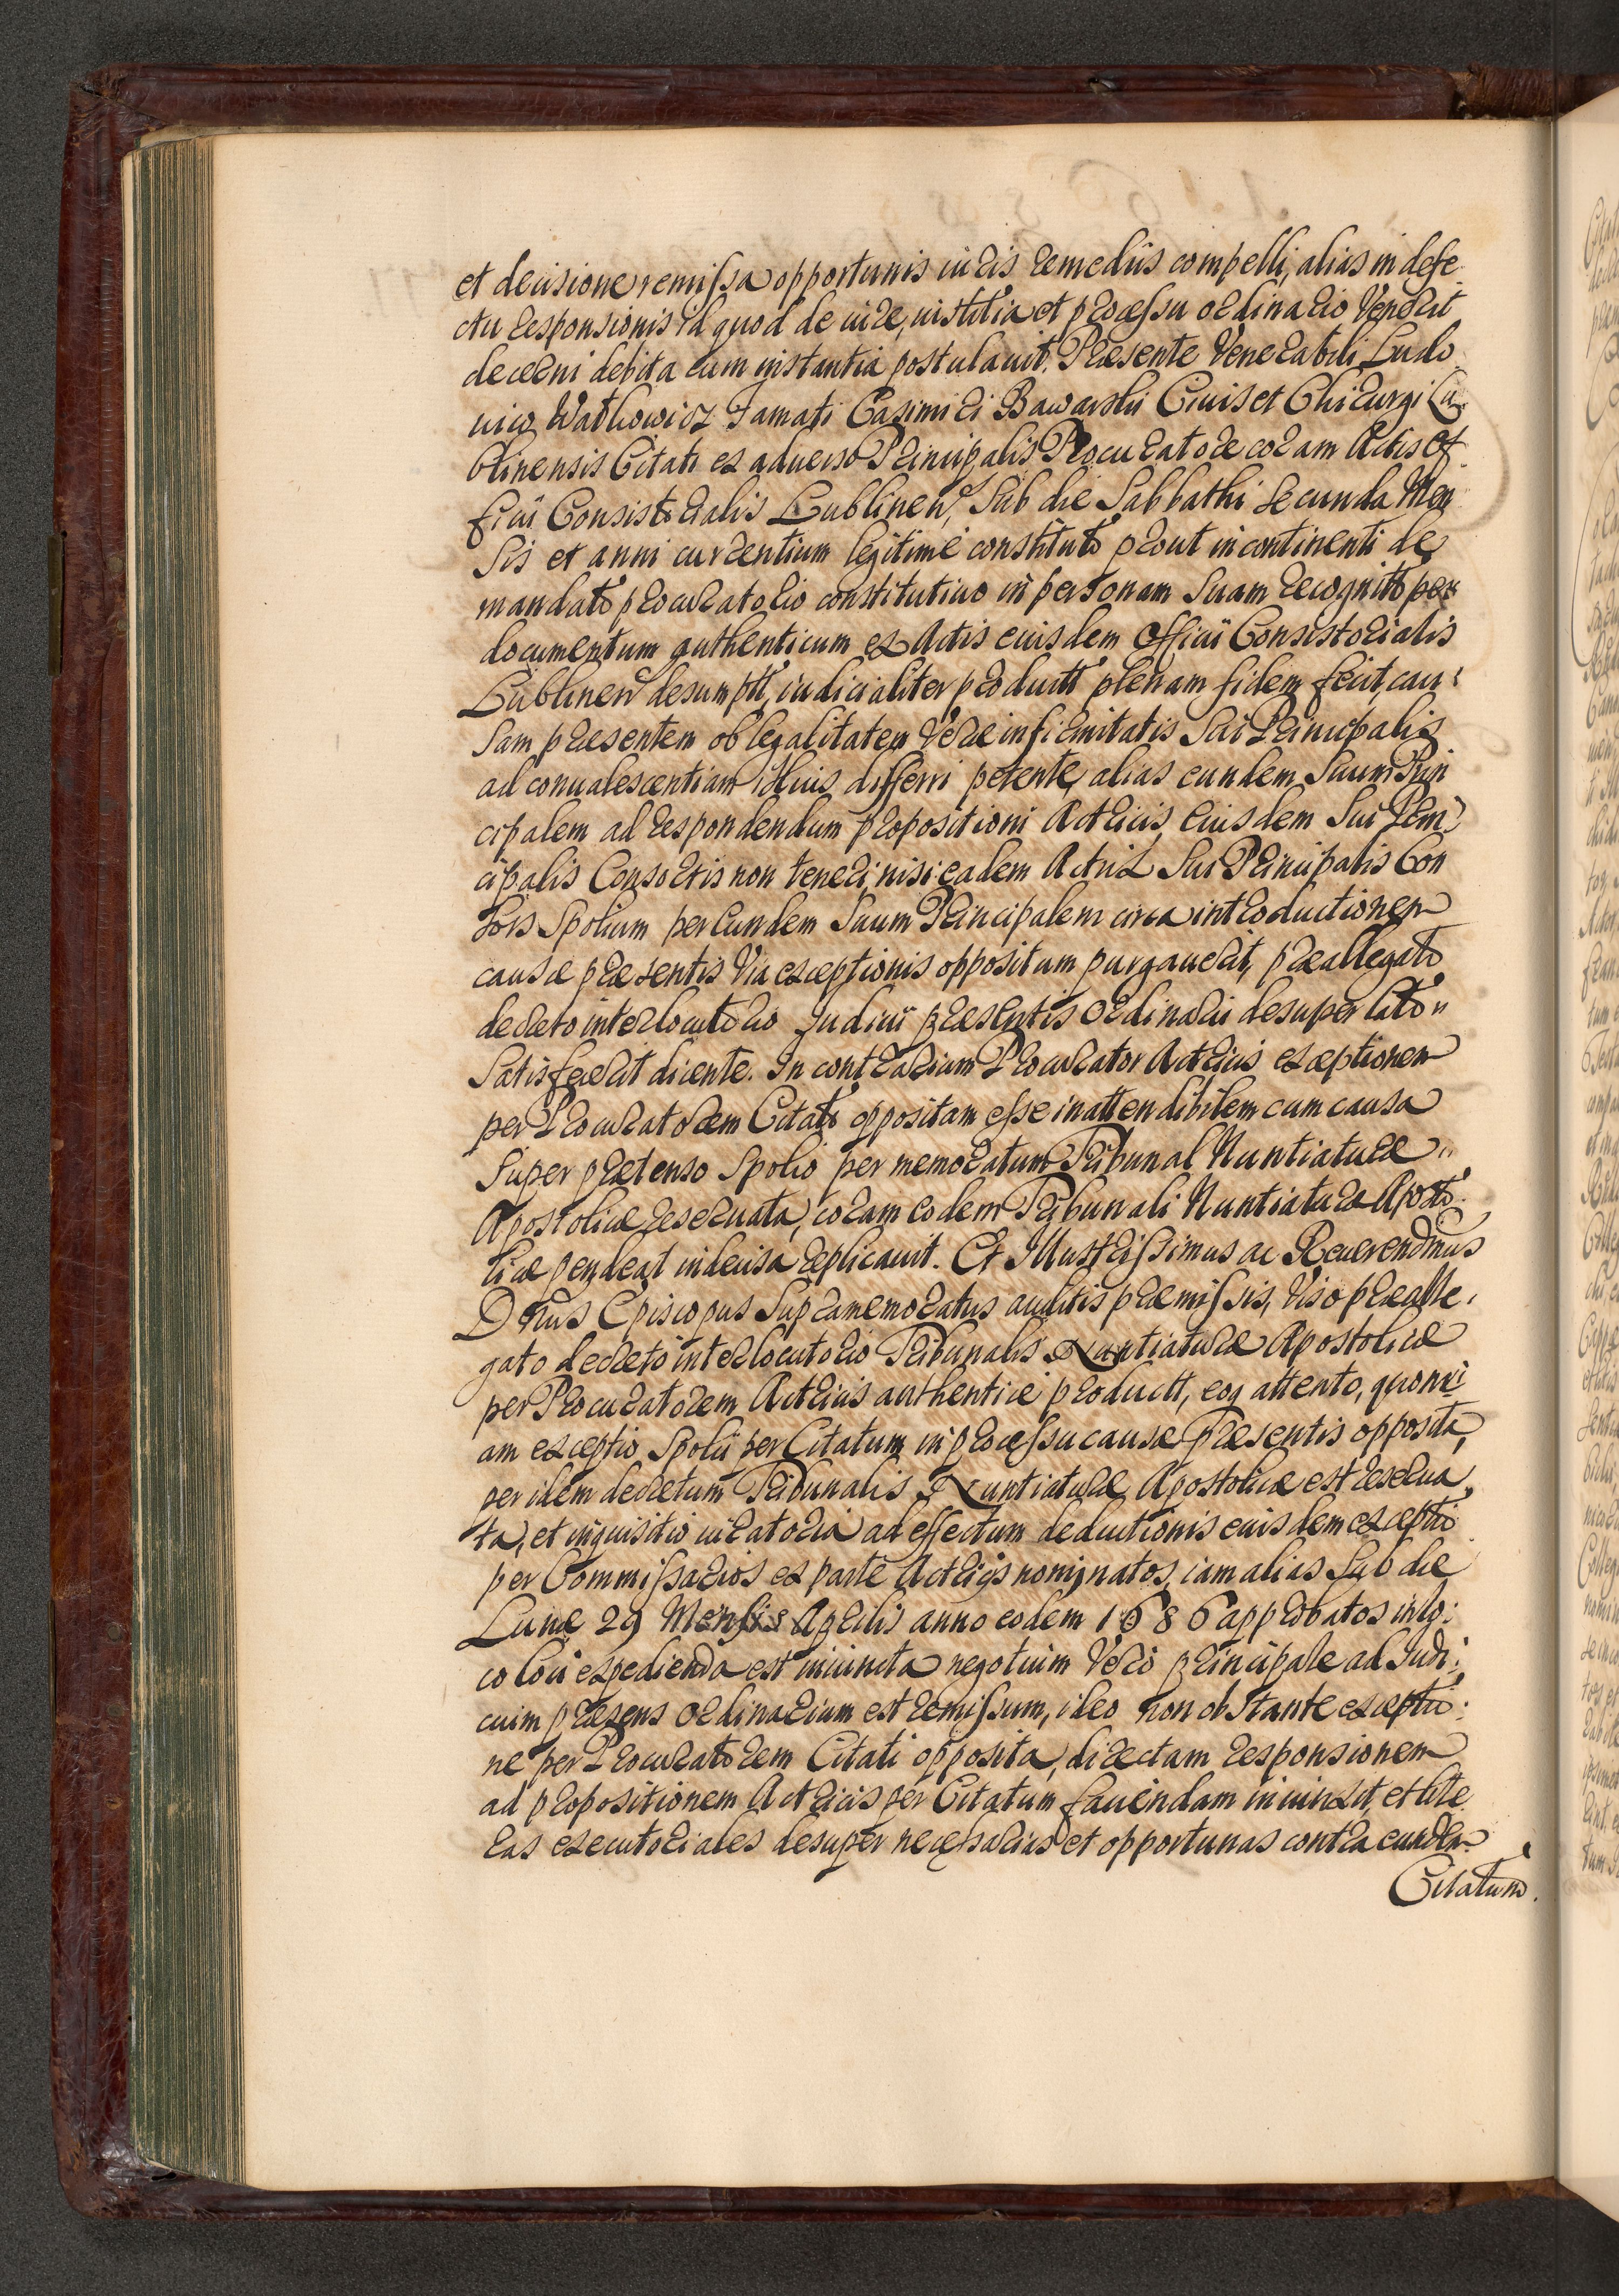 et decisione remissa opportunis iuris remediis compelli, alias in defe
ctu responsionis id quod de iure, iustitia et processu ordinario Venerit
decerni debita cum instantia postulauit. Præsente Venerabili Ludo
uico Famati Casimiri Bawarski Ciuis et Chirurgi Lu
blinensis Citati ex aduerso Principalis Procuratore coram Actis Of
ficii Consistorialis Lublinen, Sub die Sabbathi secunda Men
sis et anni currentium legitime constituto prout in continenti de
mandato procuratorio constitutiuo in personam Suam recognito per
documentum authenticum ex Actis eiusdem Officii Consistorialis
Lublinen desumptt, iudicialiter productt plenam fidem fecit, cau:
sam præsentem ob legalitatem Veræ infirmitatis Sui Principalis
ad conualescentiam illius differri petente, alias eundem Suum Prin
cipalem ad respondendum propositioni Actricis eiusdem Sui Prin:
cipalis Consortis non teneri, nisi eadem Actrix Sui Principalis Con
sors Spolium per eundem Suum Principalem circa introductionem
causæ præsentis Via exceptionis oppositum purgauerit, præallegato
decreto interlocutorio Judicii præsentis Ordinarii desuper lato"
Satisfecerit dicente. In contrarium Procurator Actricis exceptionem
per Procuratorem Citati oppositam esse inattendibilem cum causa
Super prætenso Spolio per memoratum Tribunal Nuntiaturæ"
Apostolicæ reseruata, coram eodem Tribunali Nuntiaturæ Aposto
licæ pendeat indecisa replicauit. Et Illustrissimus ac Reuerendmus
Dnus Episcopus Supramemoratus auditis præmissis, Viso præalle,
gato decreto interlocutorio Tribunalis Nuntiaturæ Apostolicæ
per Procuratorem Actricis authentice productt, eoq attento, quoni
am exceptio Spolii per Citatum in processu causæ præsentis opposita,
per idem decretum Tribunalis Nuntiaturæ Apostolicæ est reserua,
ta, et inquisitio iuratoria ad effectum deductionis eiusdem exceptio
per Commissarios ex parte Actricis nominatos, iam alias Sub die
Lunæ 29 Mensis Aprilis anno eodem 1686 approbatos in lo:
co loci expedienda est iniuncta negotium Vero principale ad Judi:
cium præsens Ordinarium est remissum, ideo non obstante exceptio:
ne per Procuratorem Citati opposita, directam responsionem
ad propositionem Actricis per Citatum faciendam iniunxit, et lite
ras executoriales desuper necessarias et opportunas contra eundem
Citatum.